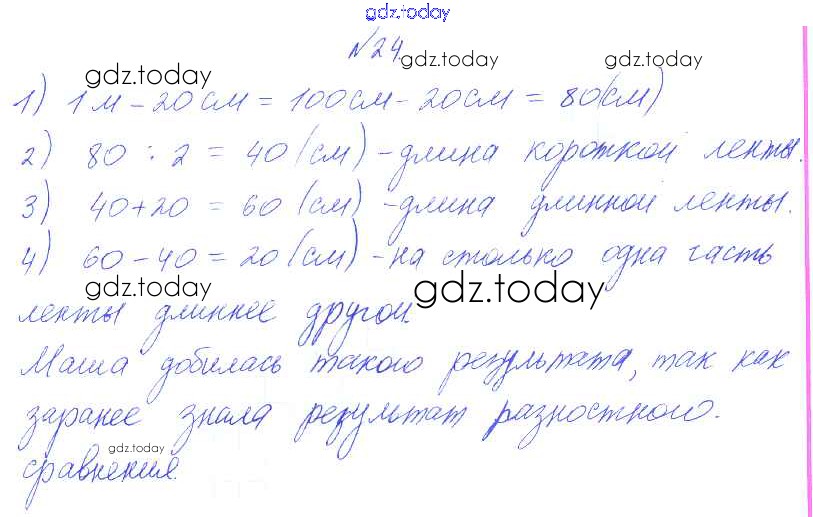 gdz.today
№24.
gdz.today gdz.today gdz.today
1) 1м - 20см = 100см - 20см = 80(см)
2) 80 : 2 = 40 (см) - длина короткой ленты.
3) 40+20 = 60 (см) - длина длинной ленты.
4) 60 - 40 = 20 (см) - на столько одна часть
gdz.today gdz.today
ленты длиннее другой.
Маша добилась такого результата, так как
заранее знала результат разностного.
gdz.today
сравнения.